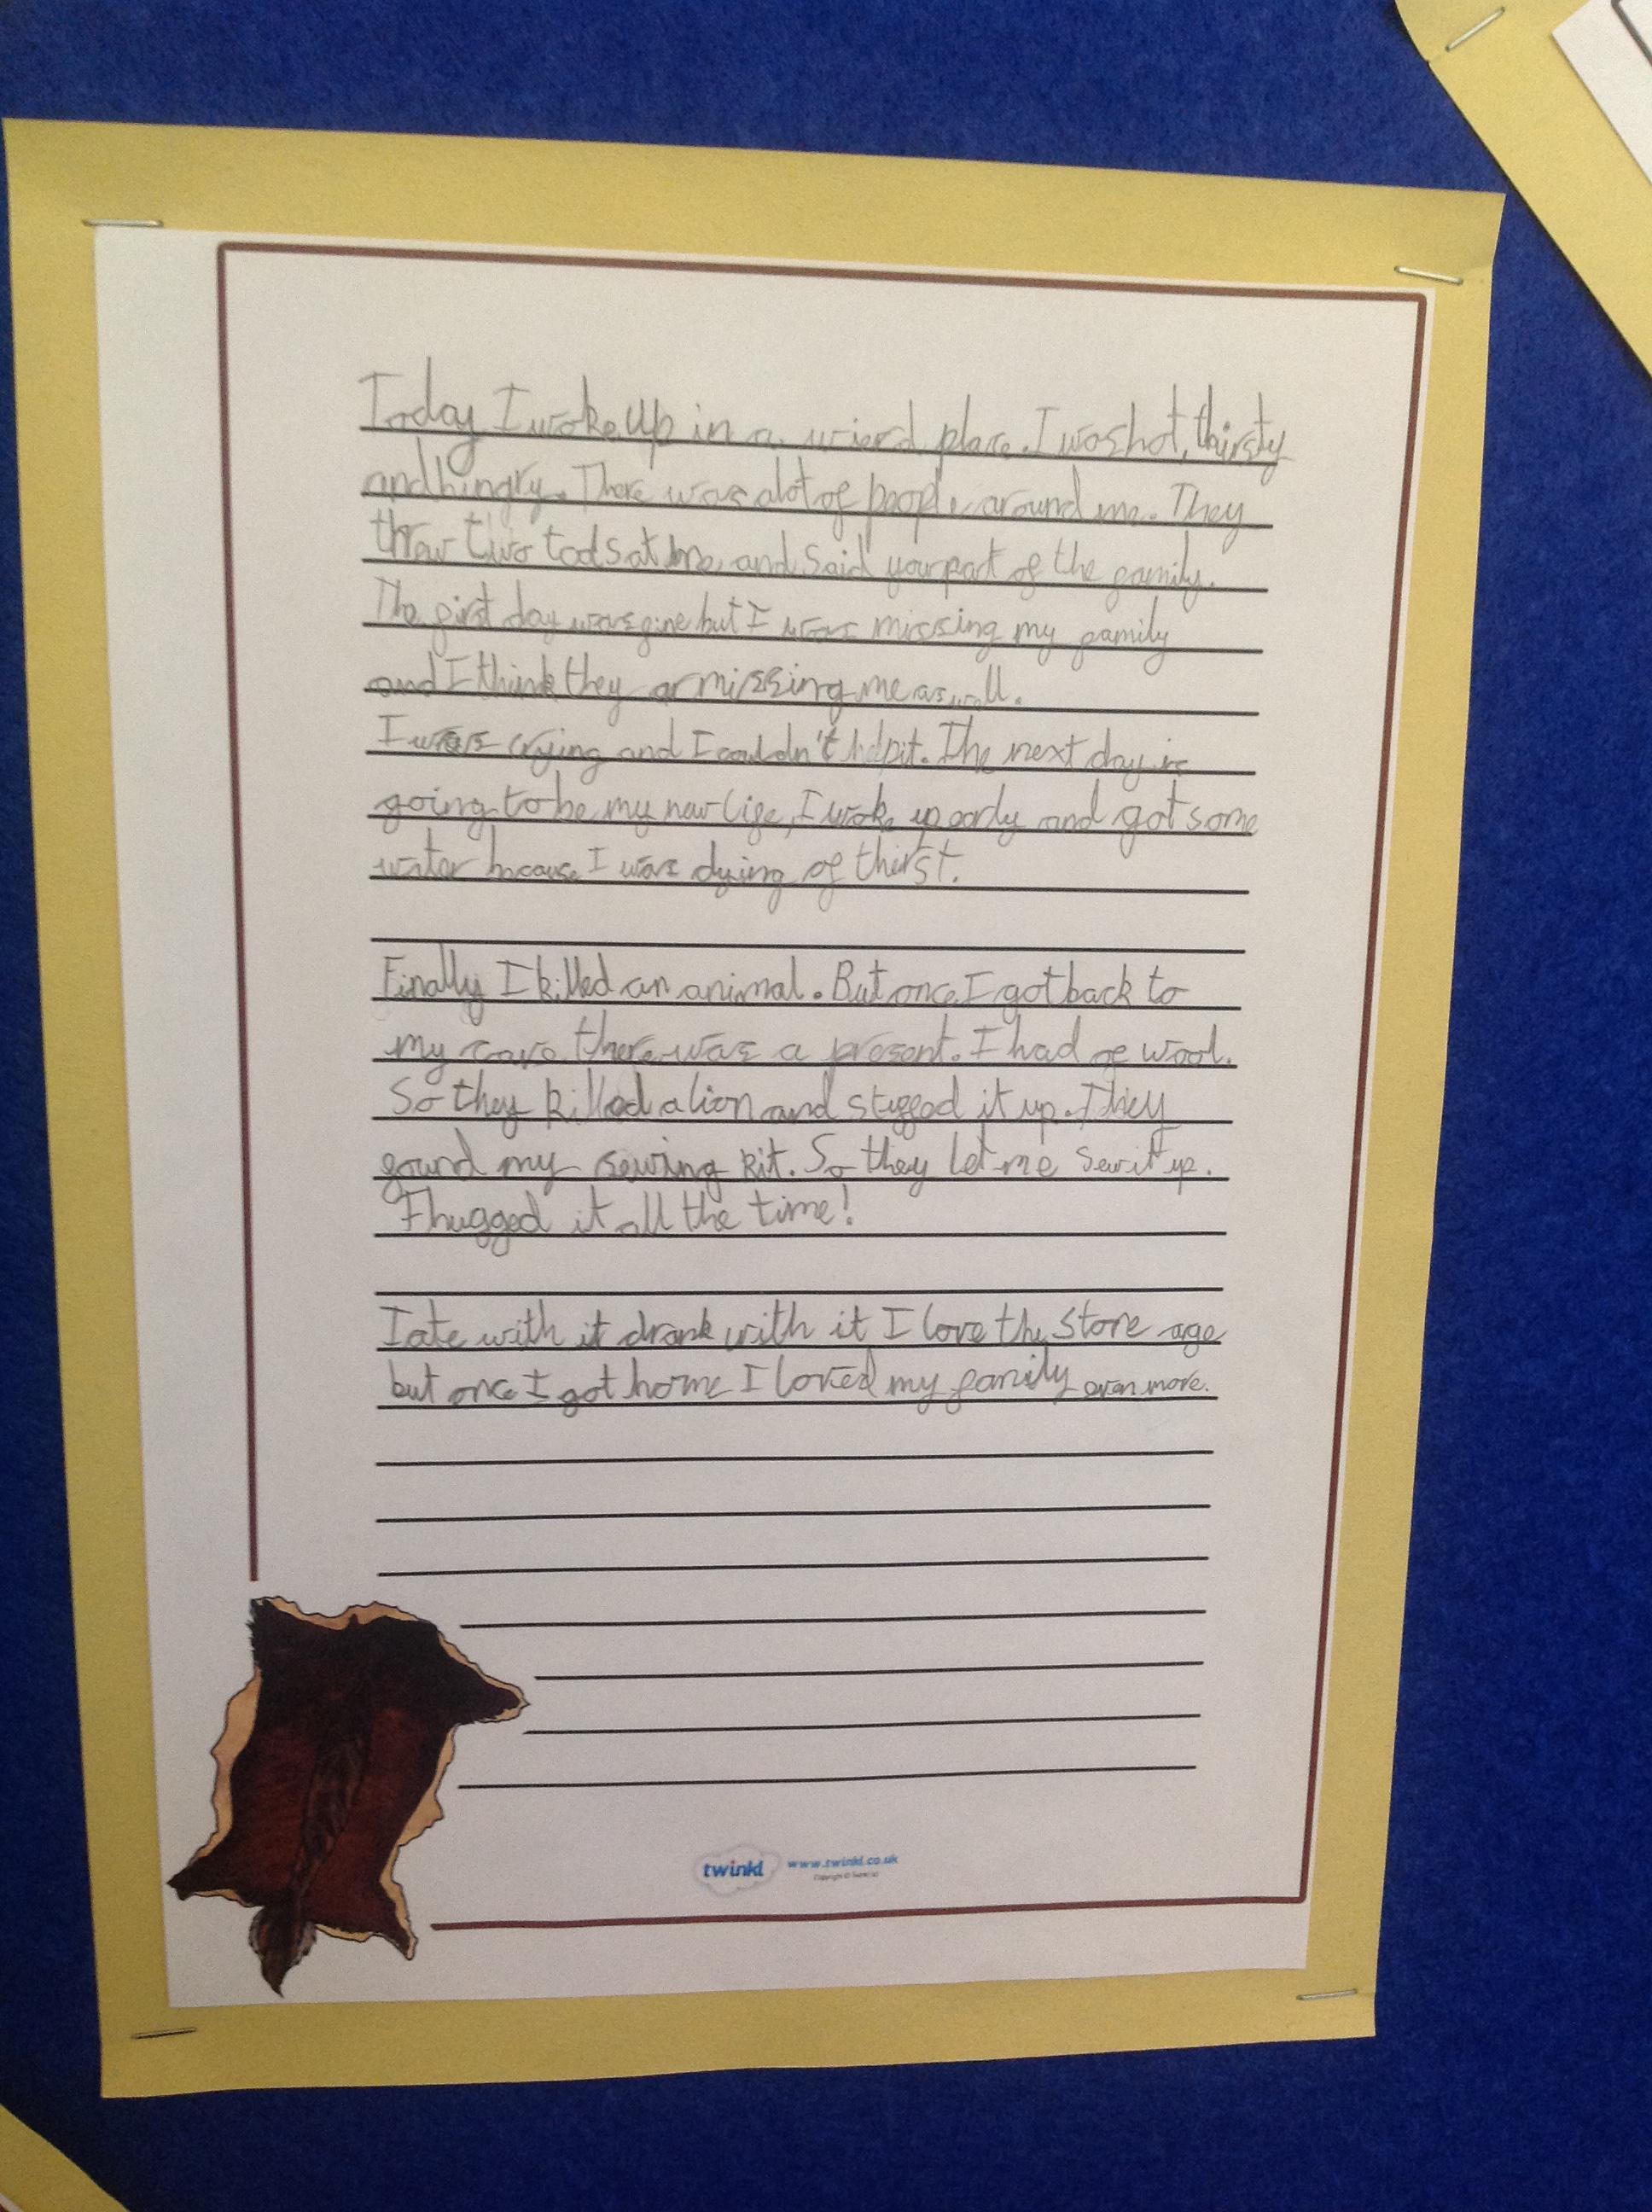 Today I woke up in a wierd place. I was hot, thirsty
and hingry. There was alot of people around me. They
threw two tools at me, and said your part of the family.
The first day was fine but I was missing my family
and I think they ar missing me as well.
I was crying and I couldn't help it. The next day is
going to be my new life, I woke up early and got some
water because I was dying of thirst.
Finally I killed an animal. But once I got back to
my cave there was a present. I had of wool.
So they killed a lion and stuffed it up. They
found my sewing kit. So they let me sew it up.
I hugged it all the time!
I ate with it drank with it I love the stone age
but once I got home I loved my family even more.
twinkl www.twinkl.co.uk